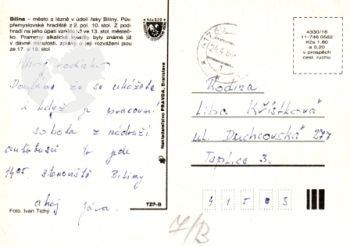 Bílina – město a lázně v údolí řeky Bíliny. Půs.
přemyslovské hradiště z 2. pol. 10. stol. Z pod-
hradí na jeho úpatí vzniklo ve 13. stol. městeč-
ko. Prameny alkalické kyselky byly známé již
v dávné minulosti, zprávy o její rozvážení jsou
za 17. a 18. stol.
Foto: Ivan Tichý
Nakladatelstvo PRAVDA, Bratislava
TZP-B
4330/15
11-746 0582
Kčs 1,80
a 0,20
v prospěch
cest. ruchu
Moji
Doufáme že se ukážete
i když je pracovní
sobota z nádraží
autobusů to jede
1405 stanoviště Bíliny
ahoj Jára.
Rodina
Líba Křížková
ul Duchcovská 277
Teplice 3.
41503
7/B